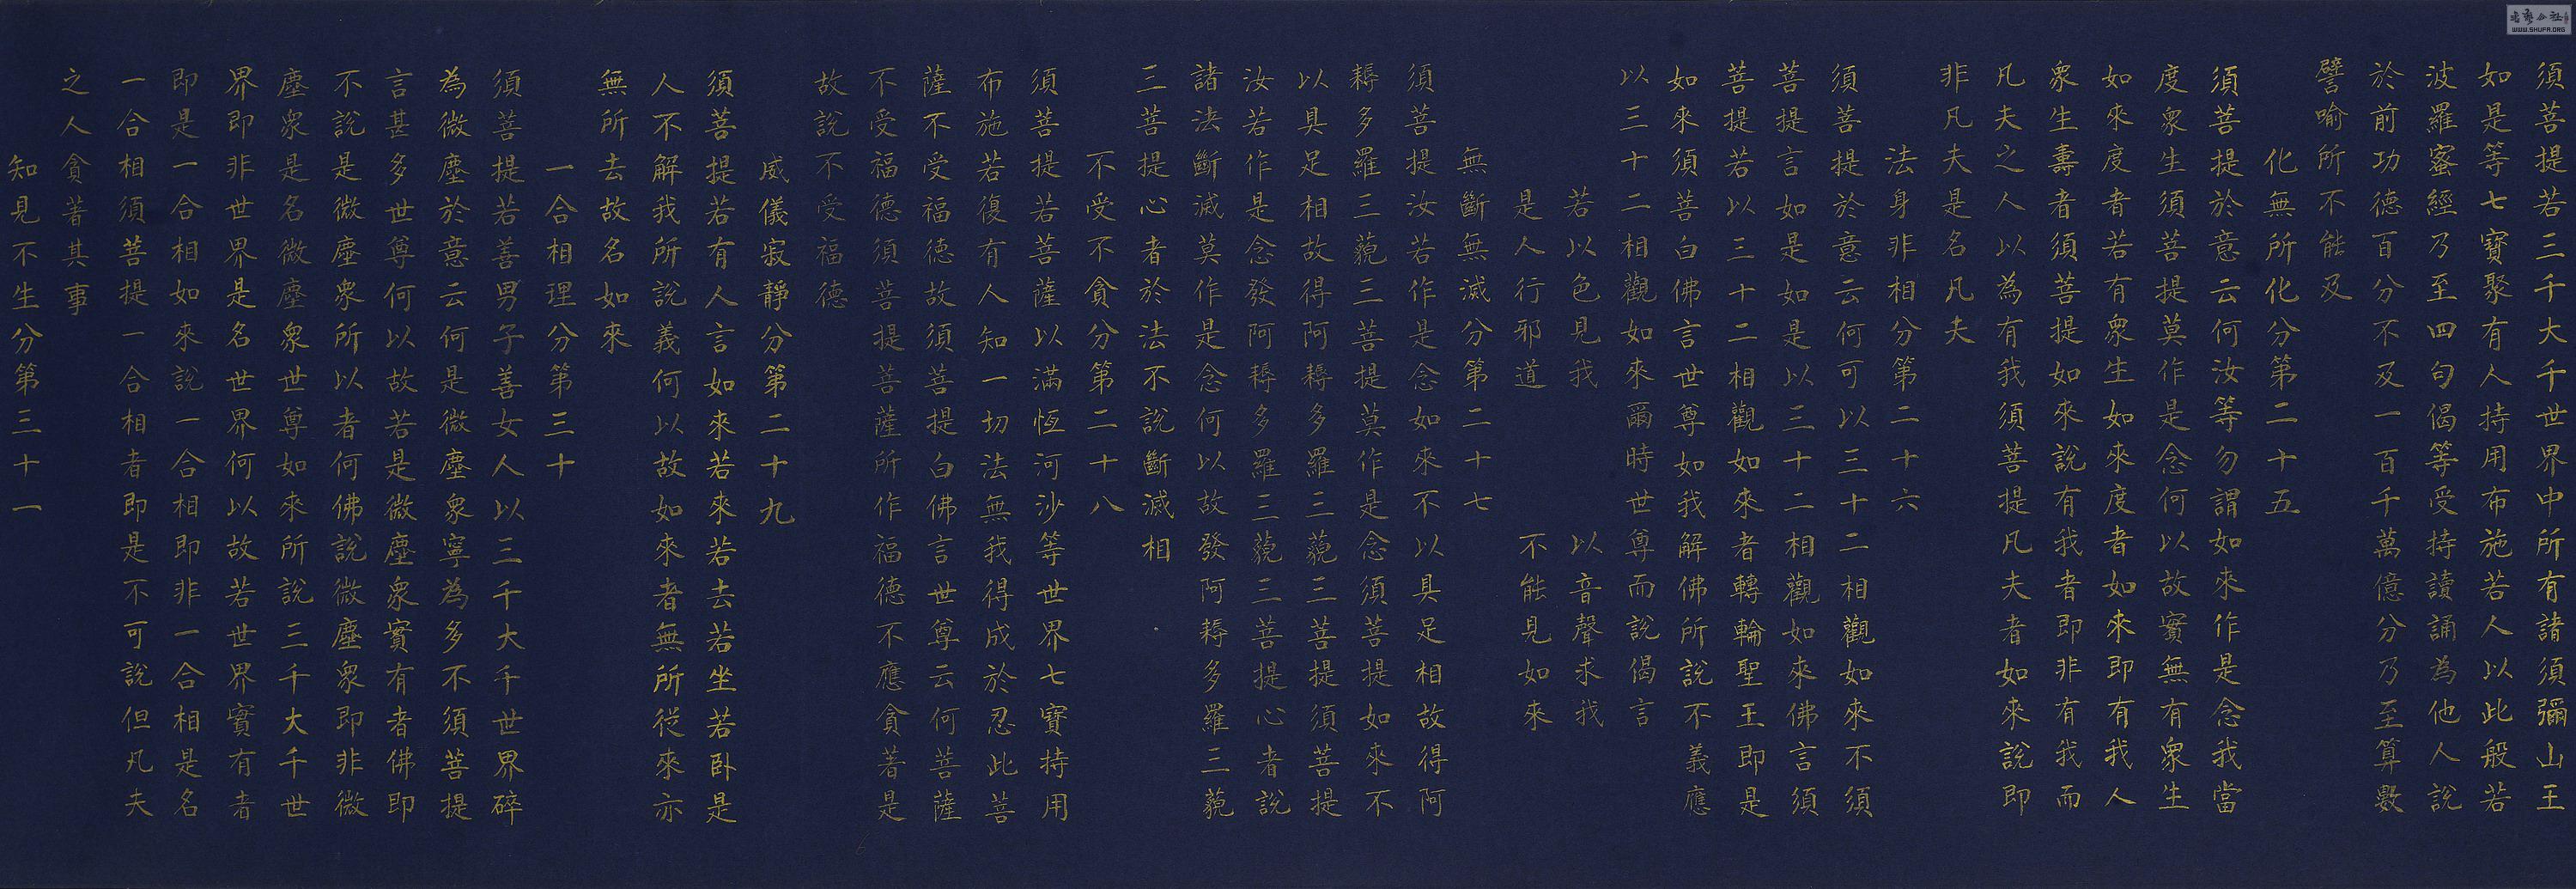 須菩提若三千大千世界中所有諸須彌山王
如是等七寶聚有人持用布施若人以此般若
波羅蜜經乃至四句偈等受持讀誦為他人說
於前功德百分不及一百千萬億分乃至算數
譬喻所不能及
化無所化分第二十五
須菩提於意云何汝等勿謂如來作是念我當
度眾生須菩提莫作是念何以故實無有眾生
如來度者若有眾生如來度者如來即有我人
眾生壽者須菩提如來說有我者即非有我而
凡夫之人以為有我須菩提凡夫者如來說即
非凡夫是名凡夫
法身非相分第二十六
須菩提於意云何可以三十二相觀如來不須
菩提言如是如是以三十二相觀如來佛言須
菩提若以三十二相觀如來者轉輪聖王即是
如來須菩白佛言世尊如我解佛所說不義應
以三十二相觀如來爾時世尊而說偈言
若以色見我 以音聲求我
是人行邪道 不能見如來
無斷無滅分第二十七
須菩提汝若作是念如來不以具足相故得阿
耨多羅三藐三菩提莫作是念須菩提如來不
以具足相故得阿耨多羅三藐三菩提須菩提
汝若作是念發阿耨多羅三藐三菩提心者說
諸法斷滅莫作是念何以故發阿耨多羅三藐
三菩提心者於法不說斷滅相
不受不貪分第二十八
須菩提若菩薩以滿恆河沙等世界七寶持用
布施若復有人知一切法無我得成於忍此菩
薩不受福德故須菩提白佛言世尊云何菩薩
不受福德須菩提菩薩所作福德不應貪著是
故說不受福德
威儀寂靜分第二十九
須菩提若有人言如來若來若去若坐若臥是
人不解我所說義何以故如來者無所從來亦
無所去故名如來
一合相理分第三十
須菩提若善男子善女人以三千大千世界碎
為微塵於意云何是微塵眾寧為多不須菩提
言甚多世尊何以故若是微塵眾實有者佛即
不說是微塵眾所以者何佛說微塵眾即非微
塵眾是名微塵眾世尊如來所說三千大千世
界即非世界是名世界何以故若世界實有者
即是一合相如來說一合相即非一合相是名
一合相須菩提一合相者即是不可說但凡夫
之人貪著其事
知見不生分第三十一
WWW.SHUFA.ORG